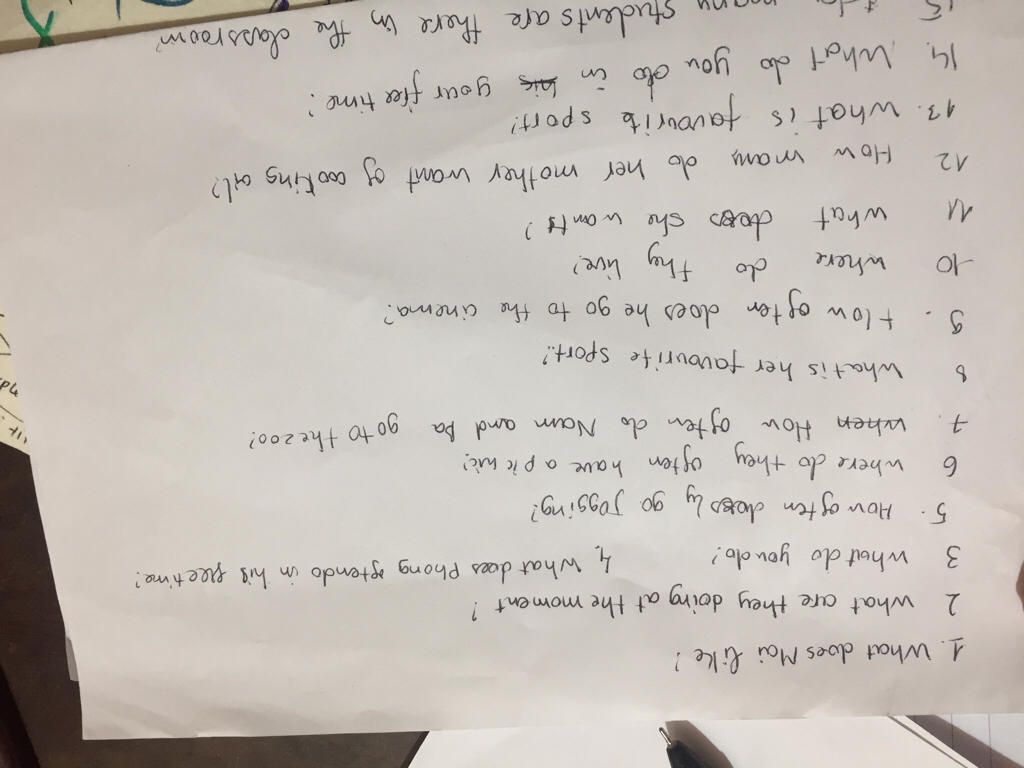 1. What does Mai like?
2 What are they doing at the moment?
3 What do you do? 4, What does Phong often do in his free time?
5. How often does Ly go jogging?
6 where do they often have a picnic?
7. How often do Nam and Ba go to the zoo?
8 What is her favourite sport?
9. How often does he go to the cinema?
10 where do they live?
11 what does she wants?
12 How many do her mother want of cooking oil?
13. What is favourite sport?
14. What do you do in your free time?
15 many students are there in the classroom?